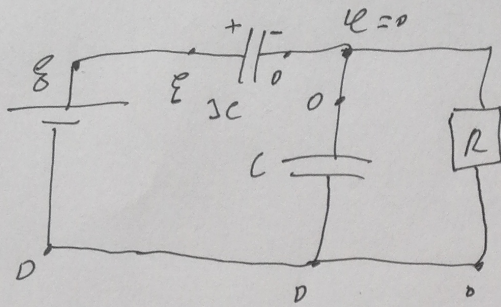 + - φ=0
ℰ ℰ 3C 0 0
C R
0 0 0